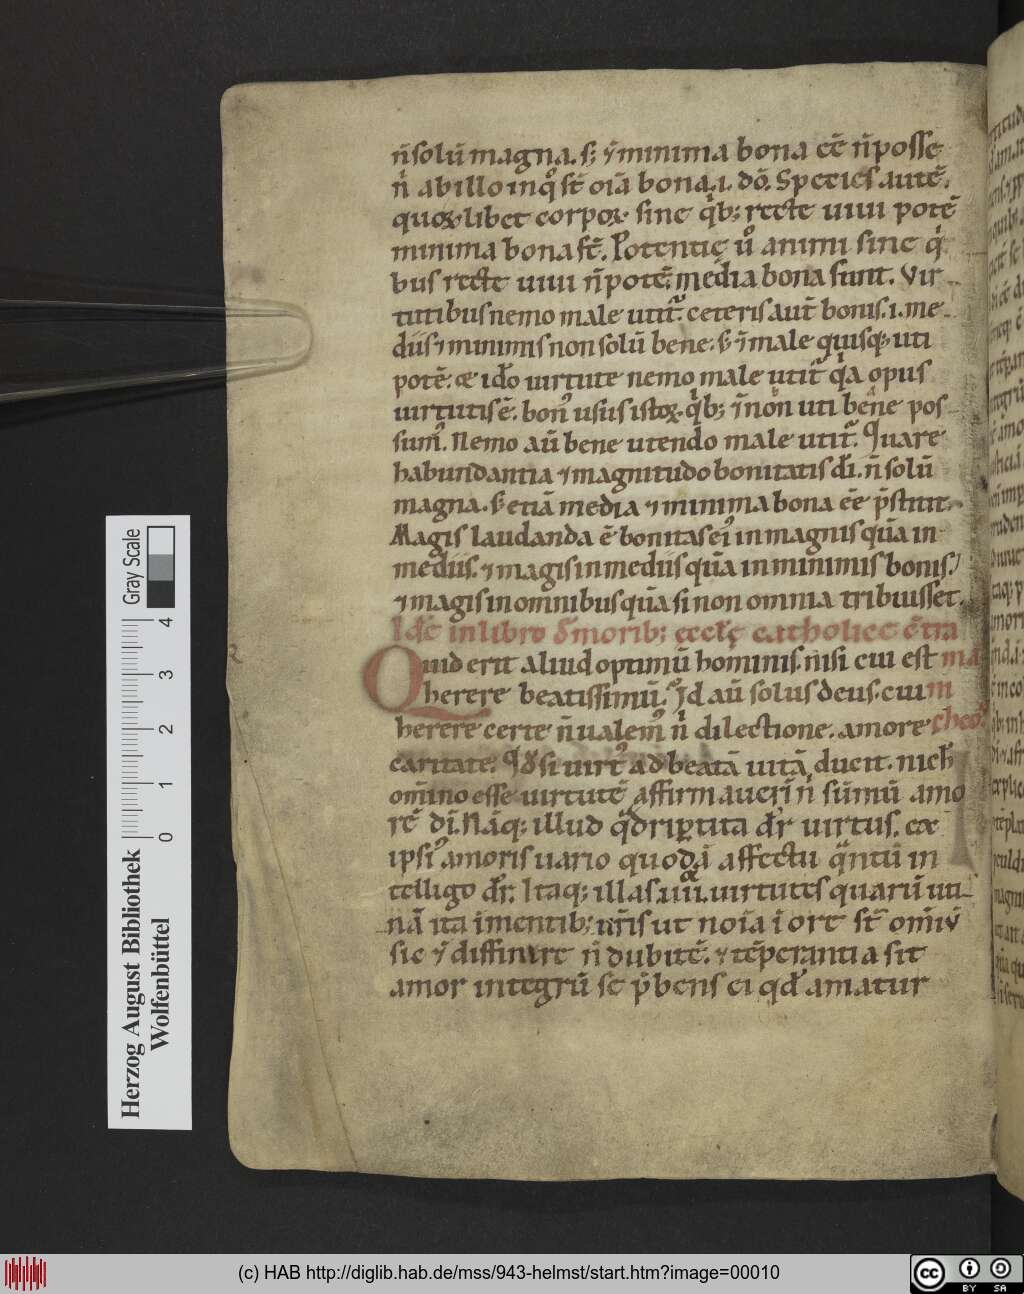 n̄ solū magna. s; ⁊ minima bona eē n̄ posse
n̄ ab illo inq̊ st̄ oīa bona .i. dō. Species autē.
quoꝝlibet corpoꝝ sine q̇b; recte uiui potē
minima bona st̄. Potentię ů animi sine q̇
bus recte uiui n̄ potē: media bona sunt. Vir
tutibus nemo male utit̄. ceteris aut̄ bonis .i. me
diis ⁊ minimis non solū bene. s; ⁊ male quisq; uti
potē: & ido uirtute nemo male utit̄ q̇a opus
uirtutis ē. bonꝰ usus istoꝝ. q̇b; ⁊ non uti bene pos
sumꝰ. Nemo aū bene utendo male utit̄. Quare
habundantia ⁊ magnitudo bonitatis dī. n̄ solū
magna. s; etiā media ⁊ minima bona eē p̄stitit.
Magis laudanda ē bonitas eiꝰ in magnis quā in
mediis. ⁊ magis in mediis quā in minimis bonis.
⁊ magis in omnibus quā si non omnia tribuisset.
Idē in libro d̄ morib; eccłę catholice 
Quid erit aliud optimū hominis. nisi cui est ma
herere beatissimū. Id aū solus deus. cui ni
herere certe n̄ ualemꝰ n̄ dilectione. amore cheos
caritate. Qd̄ si uirtꝰ ad beatā uitā ducit. nich̄
omīno esse uirtutē affirmauerī n̄ sūmū amo
rē dī. Nāq; illud q̇dripertita dr̄ uirtus. ex
ipsiꝰ amoris uario quodā affectu q̇ntū in
telligo dr̄. Itaq; illas .iiii. uirtutes quarū uti
nā ita ī mentib; urīs ut noīa ī ore st̄ omīū
sic ⁊ diffinire n̄ dubitē. ⁊ tēperantia sit
amor integrū se p̄bens ei qd̄ amatur
Herzog August Bibliothek
Wolfenbüttel
Gray Scale
0 1 2 3 4
(c) HAB http://diglib.hab.de/mss/943-helmst/start.htm?image=00010
cc BY SA